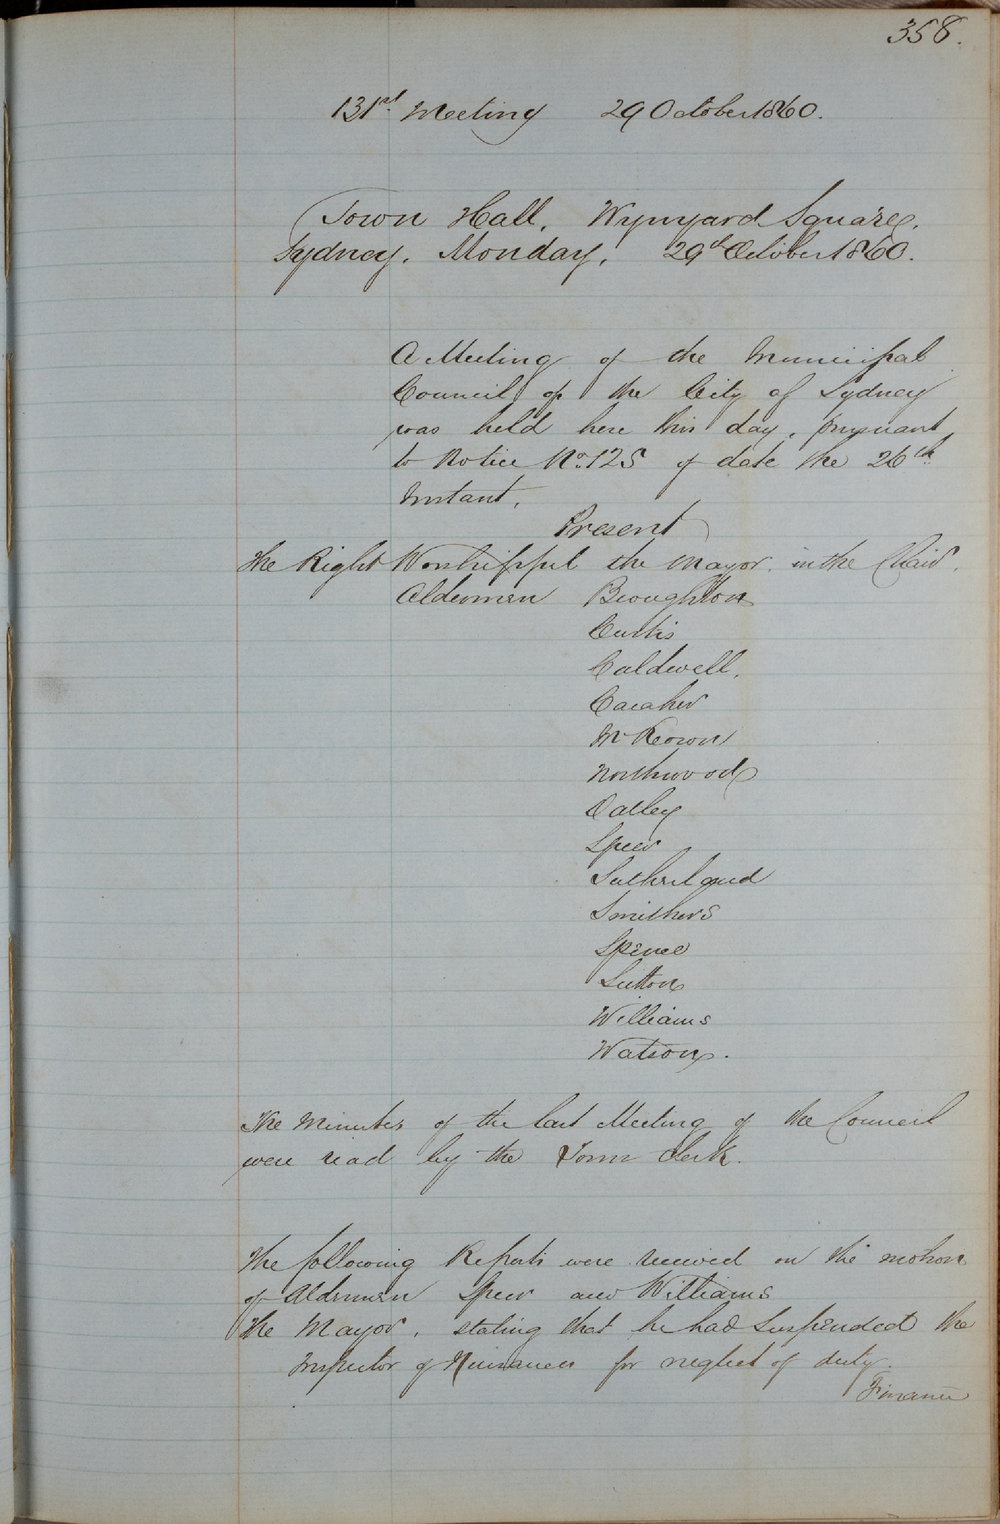 358.
131st Meeting 29 October 1860.
Town Hall, Wynyard Square,
Sydney, Monday, 29th October 1860.
A Meeting of the Municipal
Council of the City of Sydney
was held here this day, pursuant
to Notice No. 125 of date the 26th
Instant.
Present
The Right Worshipful the Mayor in the Chair.
Aldermen Broughton
Curtis
Caldwell,
Caraher
McKeown
Northwood
Oatley
Speer
Sutherland
Smithers
Spence
Sutton
Williams
Watson.
The Minutes of the last Meeting of the Council
were read by the Town Clerk.
The following Reports were received on the motion
of Aldermen Speer and Williams
The Mayor, stating that he had Suspended the
Inspector of Nuisances for neglect of duty.
Finance